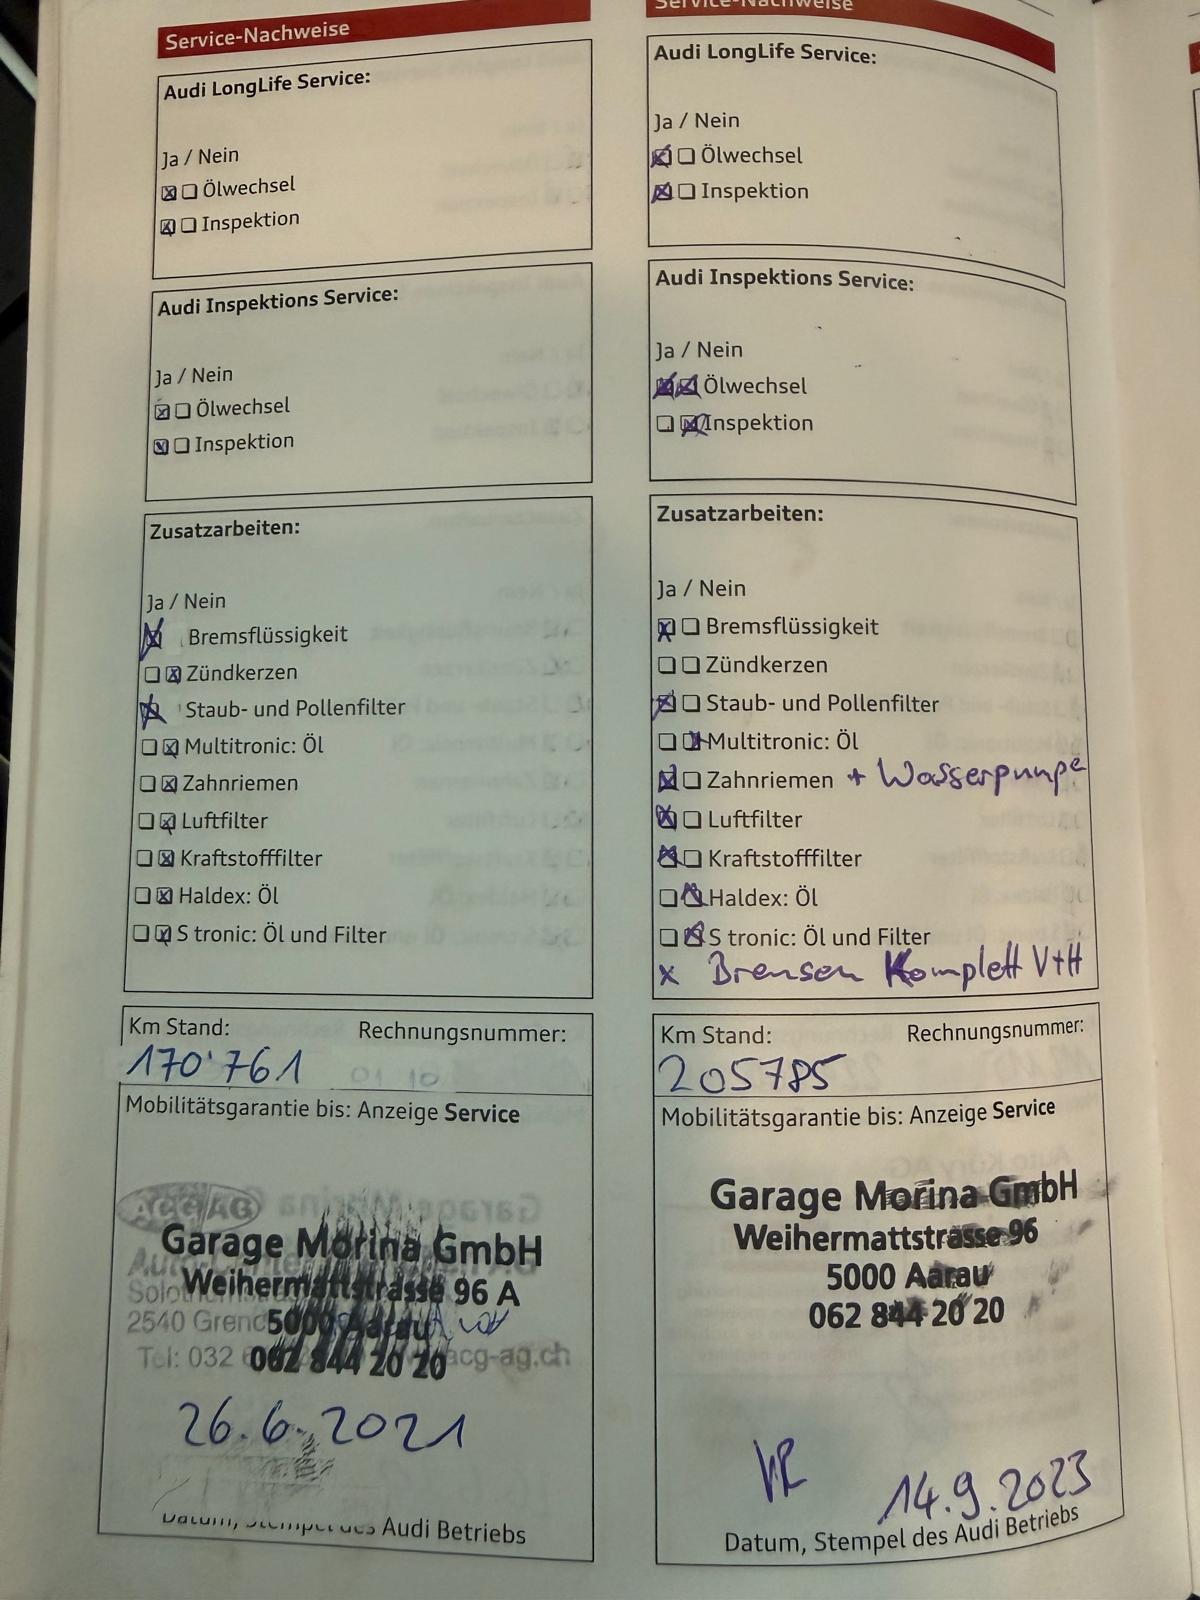 Service-Nachweise
Audi LongLife Service:
Ja / Nein
Ölwechsel
Inspektion
Audi Inspektions Service:
Ja / Nein
Ölwechsel
Inspektion
Zusatzarbeiten:
Ja / Nein
Bremsflüssigkeit
Zündkerzen
Staub- und Pollenfilter
Multitronic: Öl
Zahnriemen
Luftfilter
Kraftstofffilter
Haldex: Öl
S tronic: Öl und Filter
Km Stand: Rechnungsnummer:
170'761 01 10
Mobilitätsgarantie bis: Anzeige Service
ACG AG
Garage Morina GmbH
Weihermattstrasse 96 A
5000 Aarau
2540
062 844 20 20
Tel: 032 acg-ag.ch
26.6.2021
Datum, Stempel des Audi Betriebs
Service-Nachweise
Audi LongLife Service:
Ja / Nein
Ölwechsel
Inspektion
Audi Inspektions Service:
Ja / Nein
Ölwechsel
Inspektion
Zusatzarbeiten:
Ja / Nein
Bremsflüssigkeit
Zündkerzen
Staub- und Pollenfilter
Multitronic: Öl
Zahnriemen + Wasserpumpe
Luftfilter
Kraftstofffilter
Haldex: Öl
S tronic: Öl und Filter
x Bremsen Komplett V+H
Km Stand: Rechnungsnummer:
205785
Mobilitätsgarantie bis: Anzeige Service
Garage Morina GmbH
Weihermattstrasse 96
5000 Aarau
062 844 20 20
14.9.2023
Datum, Stempel des Audi Betriebs